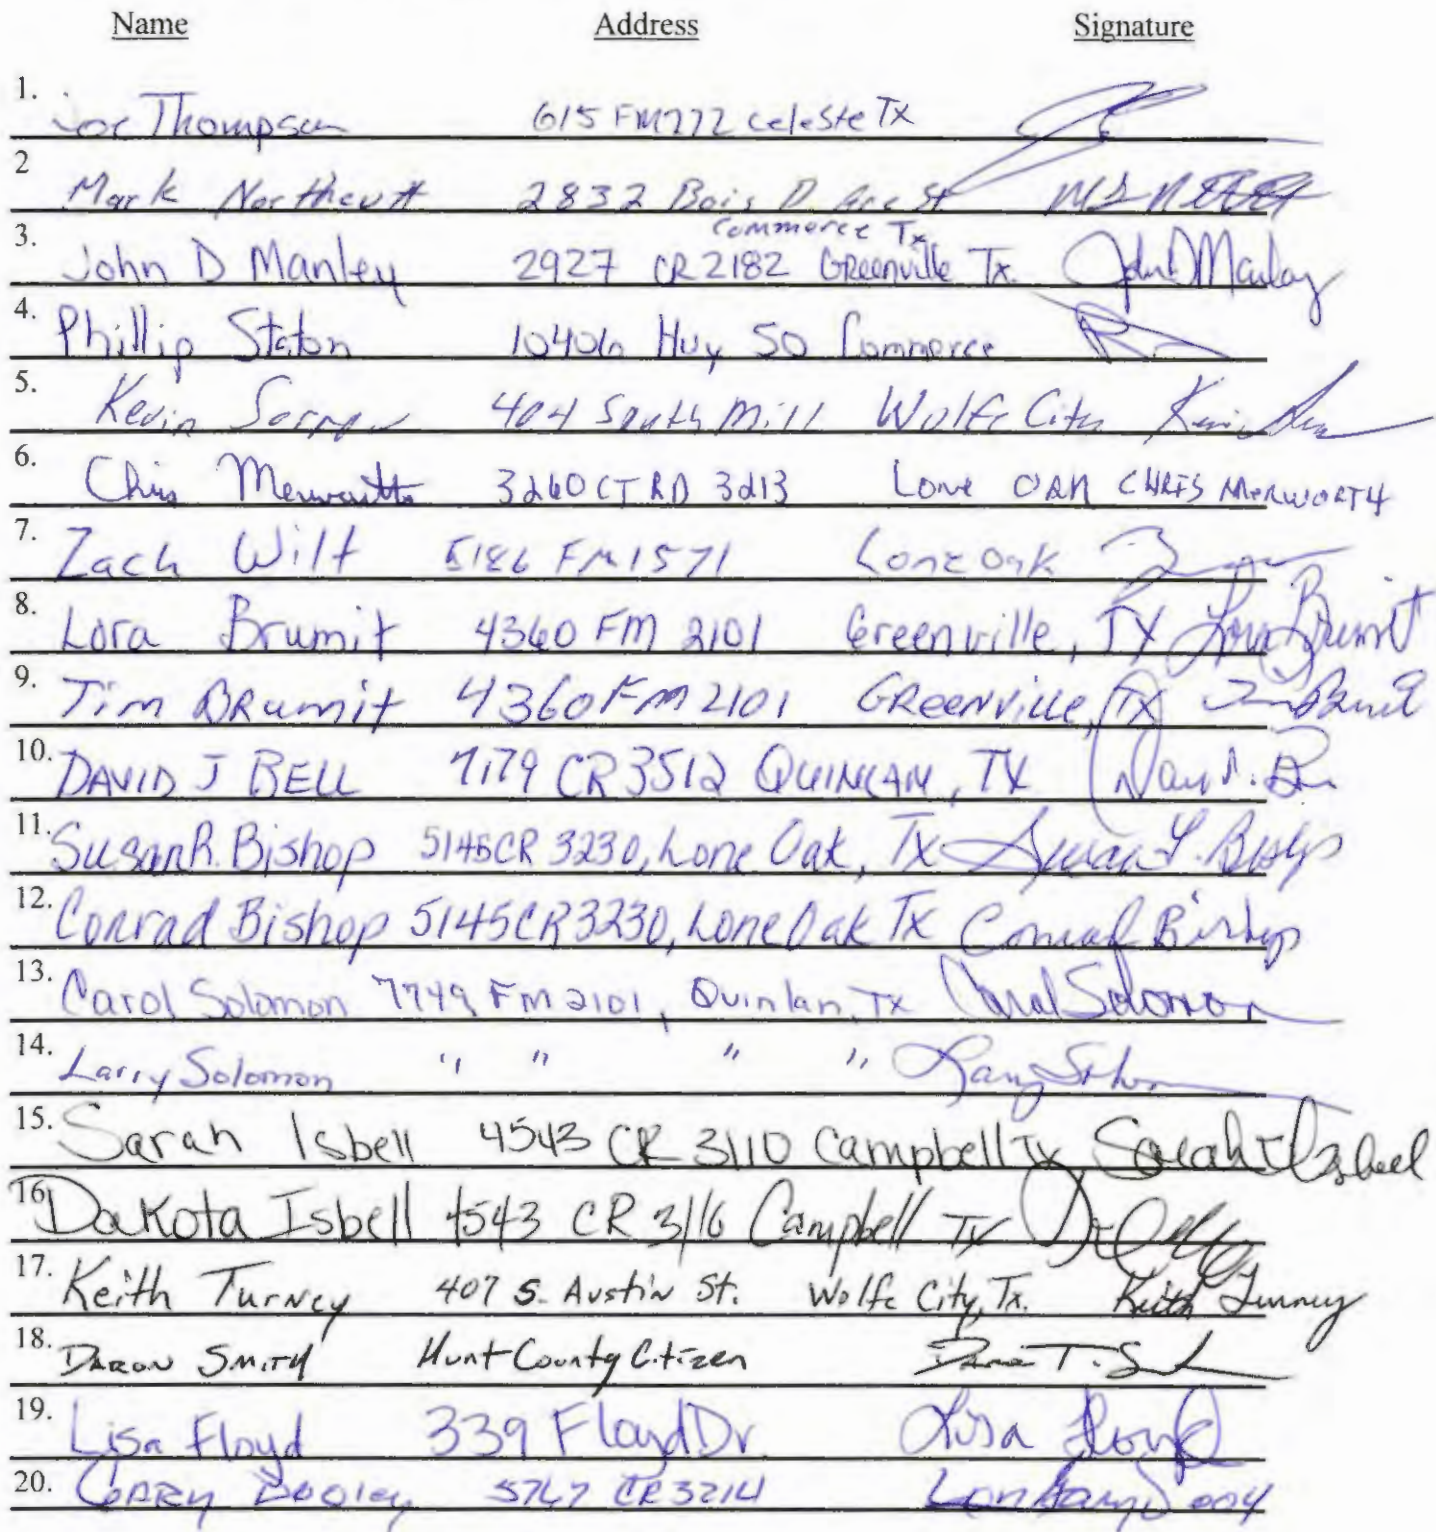 Name Address Signature
1. Joe Thompson 615 FM 272 Celeste TX
2 Mark Northcutt 2832 Bois D Arc St
Commerce Tx
3. John D Manley 2927 CR 2182 Greenville Tx. John D Manley
4. Phillip Staton Hwy 50 Commerce
5. Kevin 404 South Mill Wolfe City Kevin
6. Chris 3260 CT RD 3213 Lone OAK CHRIS MERWORTH
7. Zach Wilt 5186 FM 1571 Lone Oak
8. Lora Brumit 4360 FM 2101 Greenville, TX Lora Brumit
9. Tim BRumit 4360 FM 2101 GReenville, TX
10. DAVID J BELL 7179 CR 3512 QUINLAN, TX
11. Susan R. Bishop 5145 CR 3230, Lone Oak, Tx Susan Bishop
12. Conrad Bishop 5145 CR 3230, Lone Oak Tx Conrad Bishop
13. Carol Solomon 7749 FM 2101, Quinlan, Tx Carol Solomon
14. Larry Solomon " " " " Larry Solomon
15. Sarah Isbell 4543 CR 3110 Campbell Tx Sarah Isbell
16 Dakota Isbell 4543 CR 3116 Campbell TX
17. Keith Turney 407 S. Austin St. Wolfe City, Tx. Keith Turney
18. DARON SMITH Hunt County Citizen
19. Lisa Floyd 339 Floyd Dr Lisa Floyd
20. GARRY 5767 CR 3214